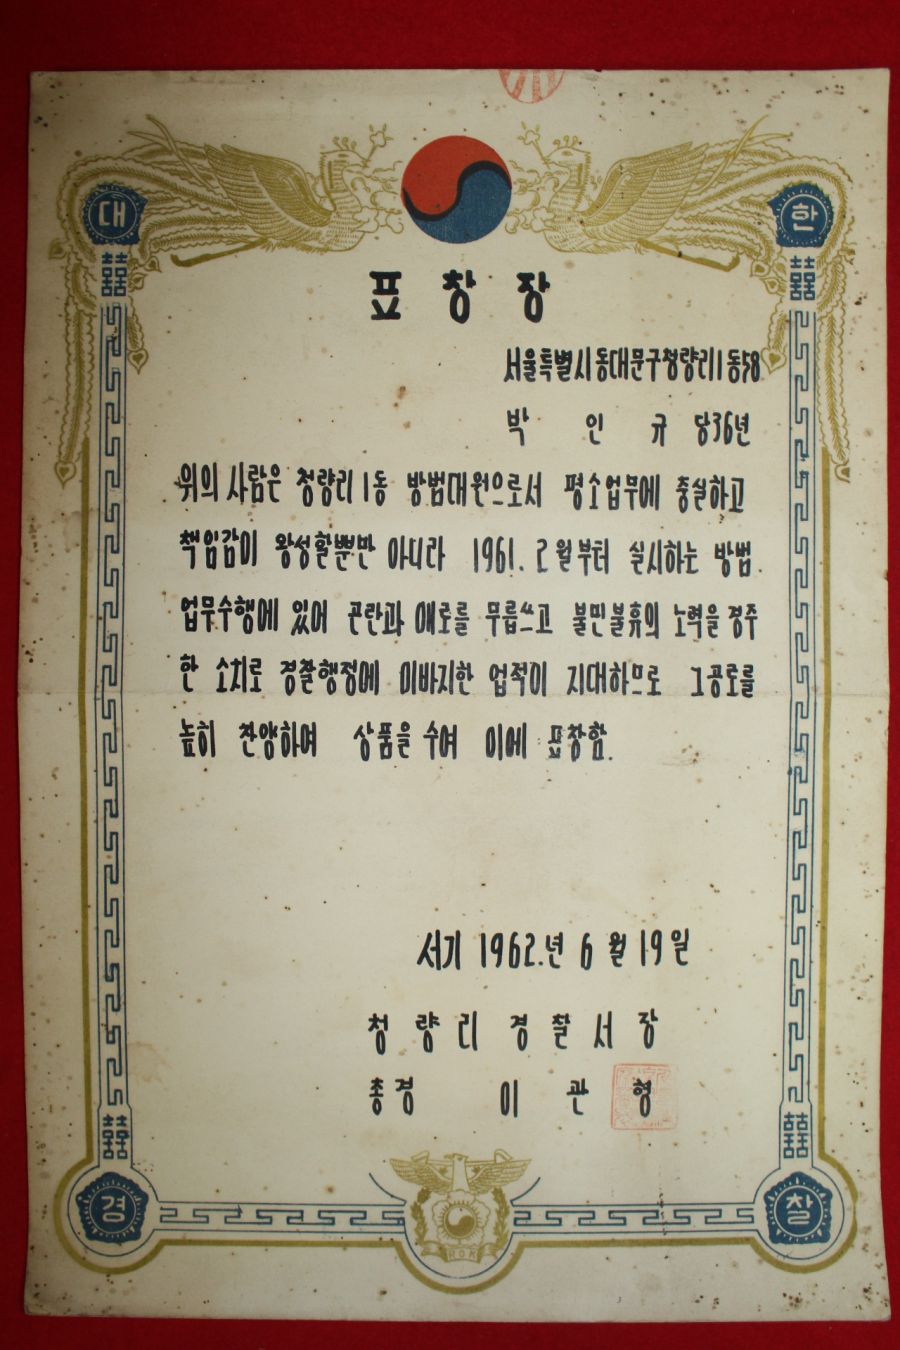 대 한
囍 囍
표 창 장
서울특별시동대문구청량리1동58
박 인 규 당36년
위의 사람은 청량리 1동 방범대원으로서 평소업무에 충실하고
책임감이 왕성할뿐만 아니라 1961. 2월부터 실시하는 방범
업무수행에 있어 곤란과 애로를 무릅쓰고 불면불휴의 노력을 경주
한 소치로 경찰행정에 이바지한 업적이 지대하므로 그공로를
높히 찬양하여 상품을 수여 이에 표창함.
서기 1962.년 6월 19일
청량리경찰서장
총경 이 관 형
囍 囍
경 찰
ROK